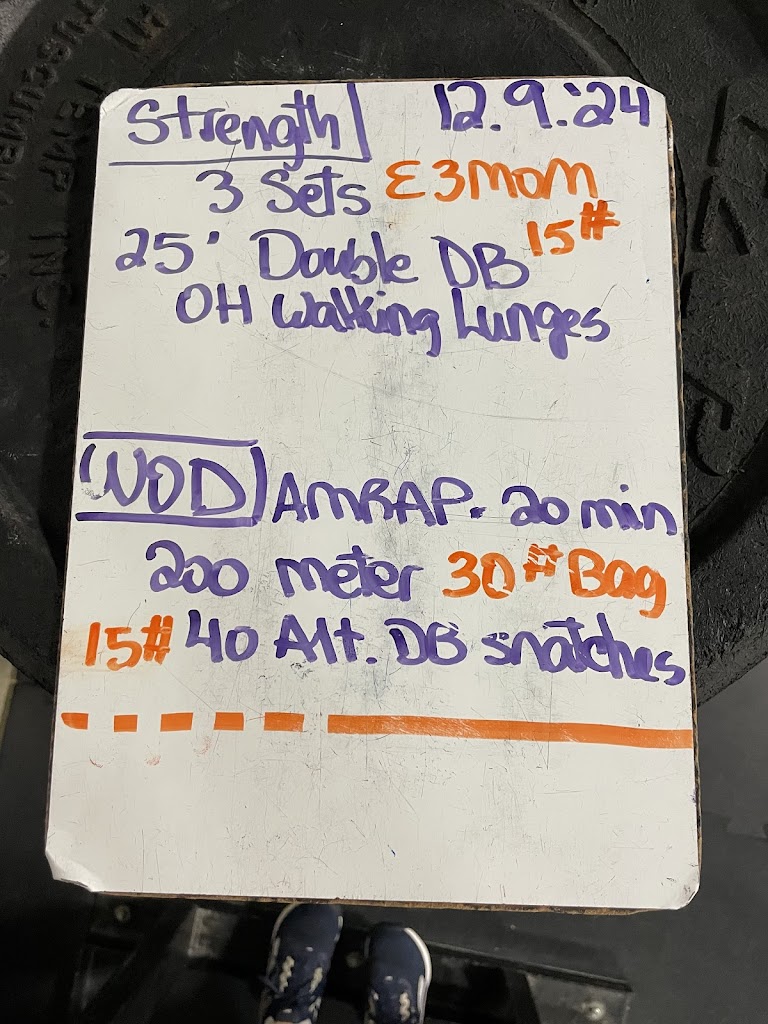 Strength 12.9.'24
3 Sets E3MOM
25' Double DB 15#
OH Walking Lunges
WOD AMRAP. 20 min
200 meter 30# Bag
15# 40 Alt. DB snatches
TUSCUMBIA
TEMP
INC.